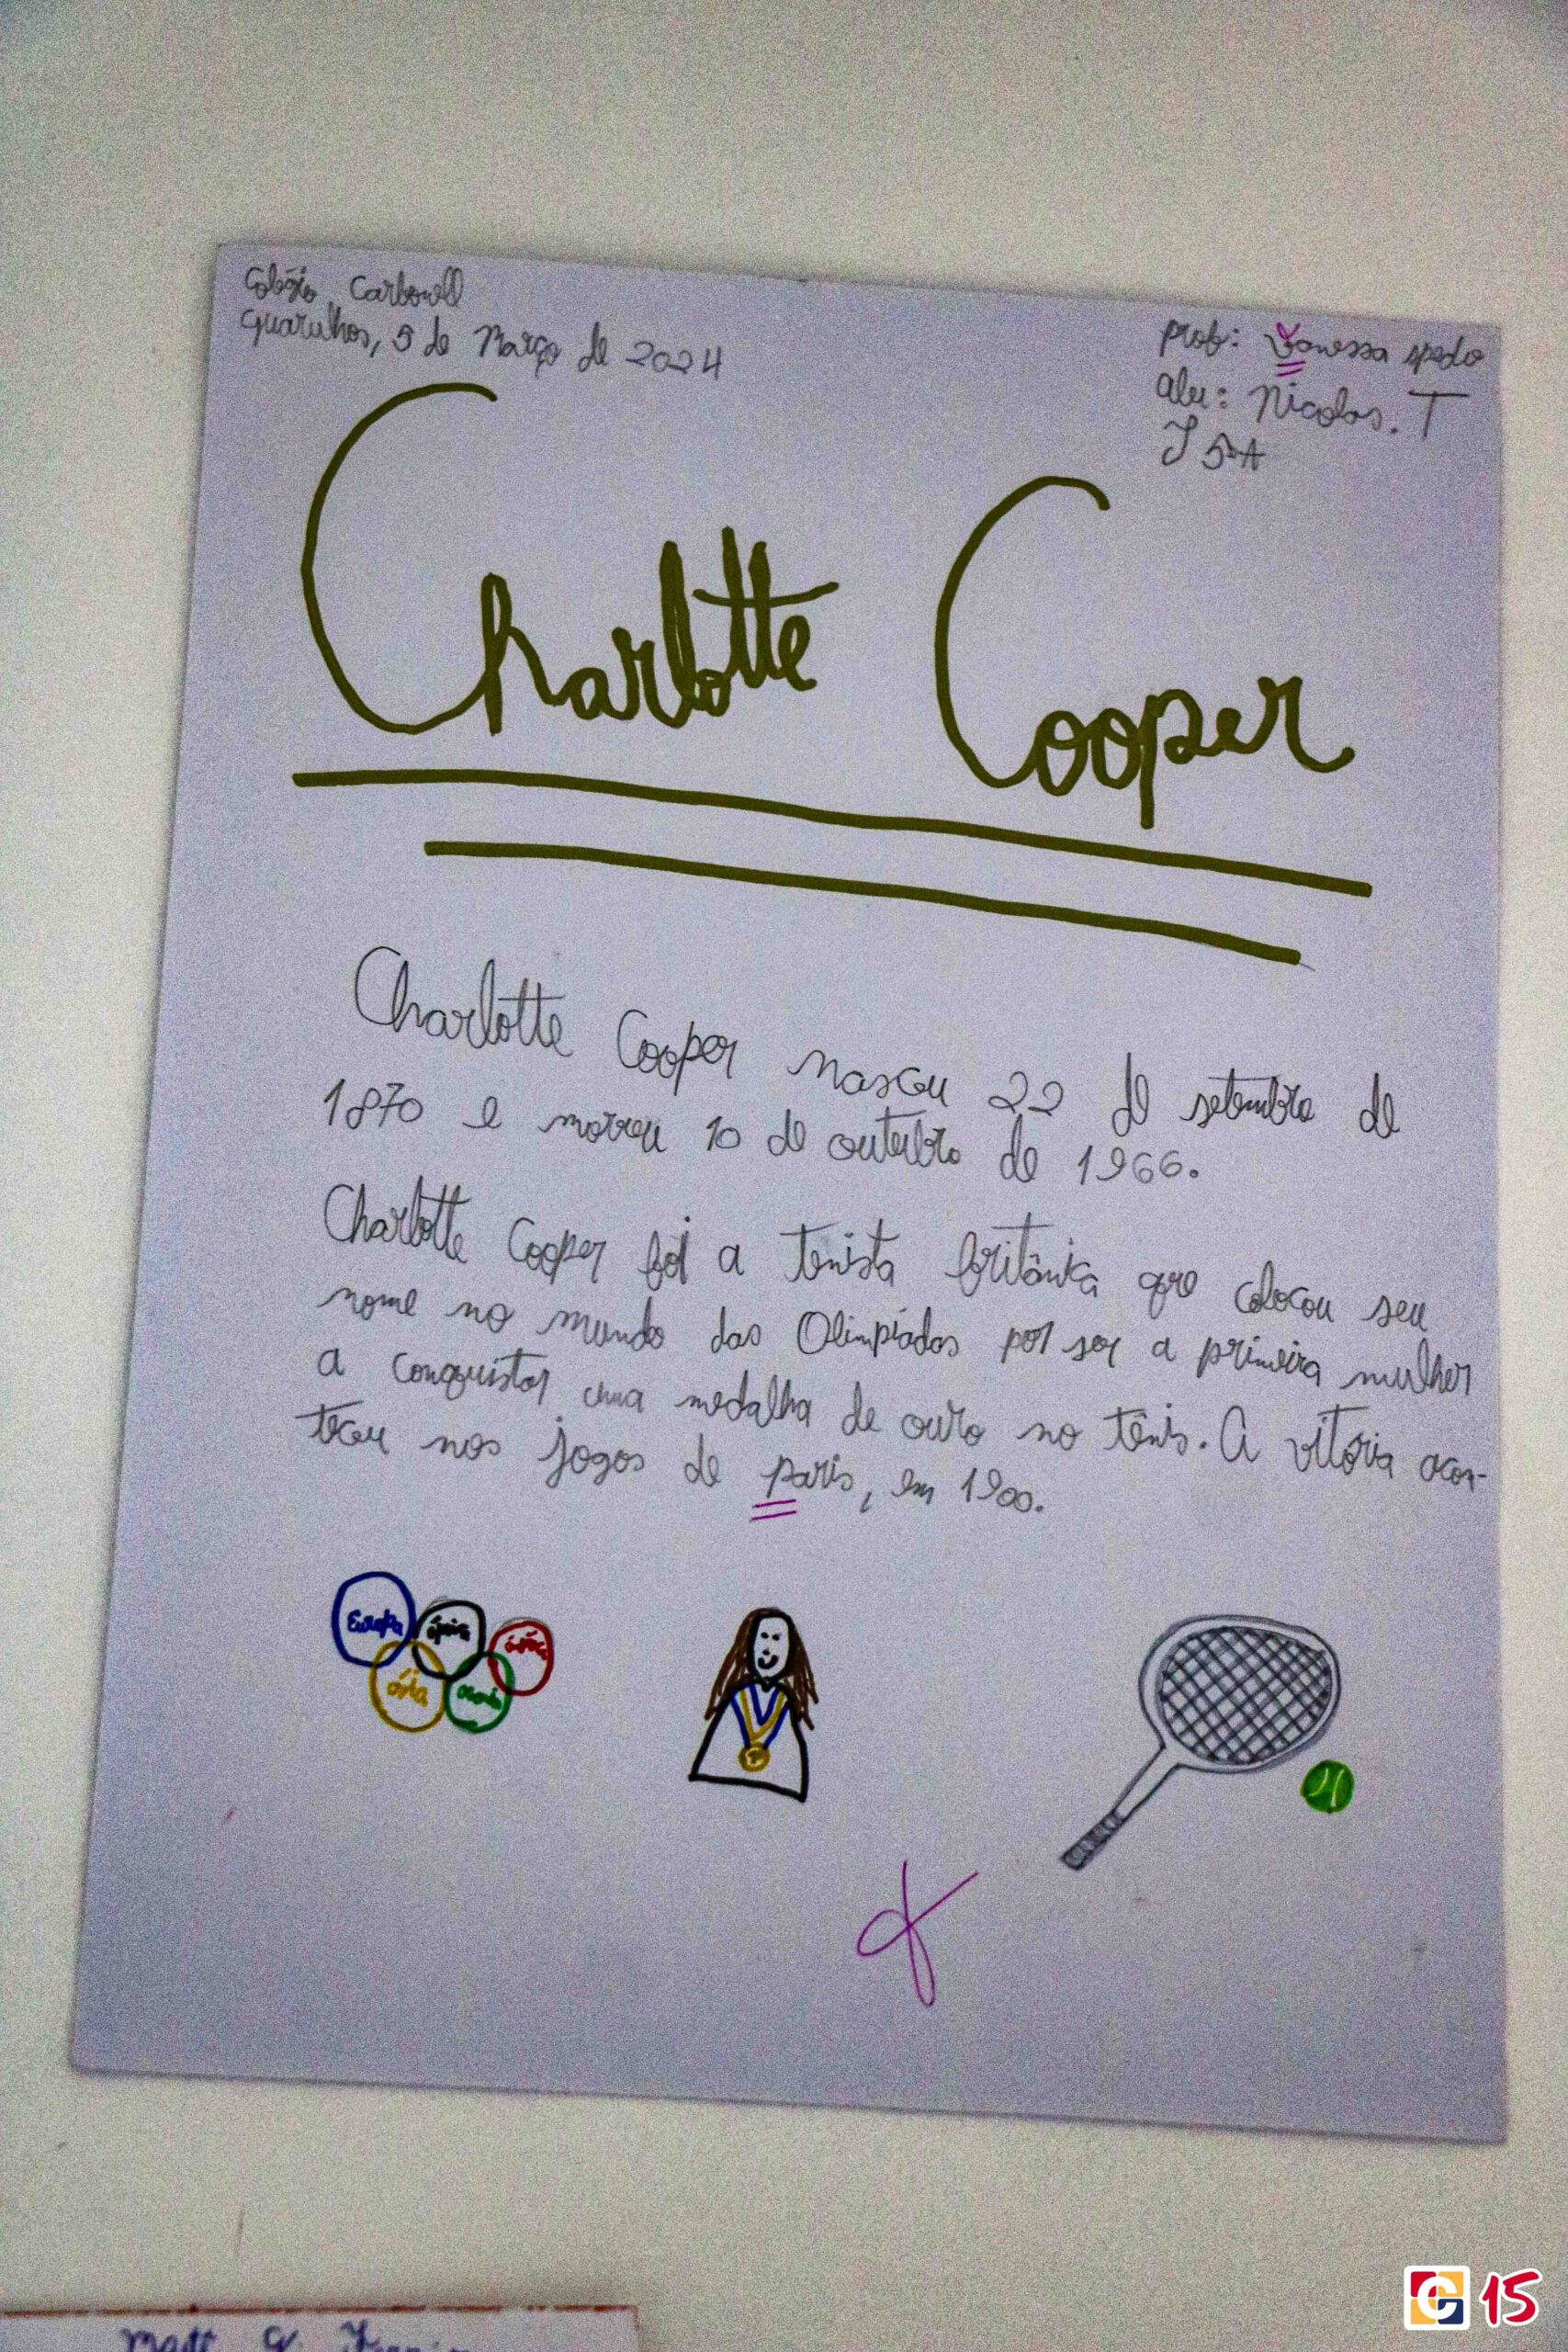 Colégio Carbonell
Guarulhos, 5 de Março de 2024
prof: Vanessa spedo
alu: Nicolas. T
5ºA
Charlotte Cooper
Charlotte Cooper nasceu 22 de setembro de
1870 e morreu 10 de outubro de 1966.
Charlotte Cooper foi a tenista britânica que colocou seu
nome no mundo das Olimpíadas por ser a primeira mulher
a conquistar uma medalha de ouro no tênis. A vitória acon-
teceu nos jogos de paris, em 1900.
Europa
ásia
15